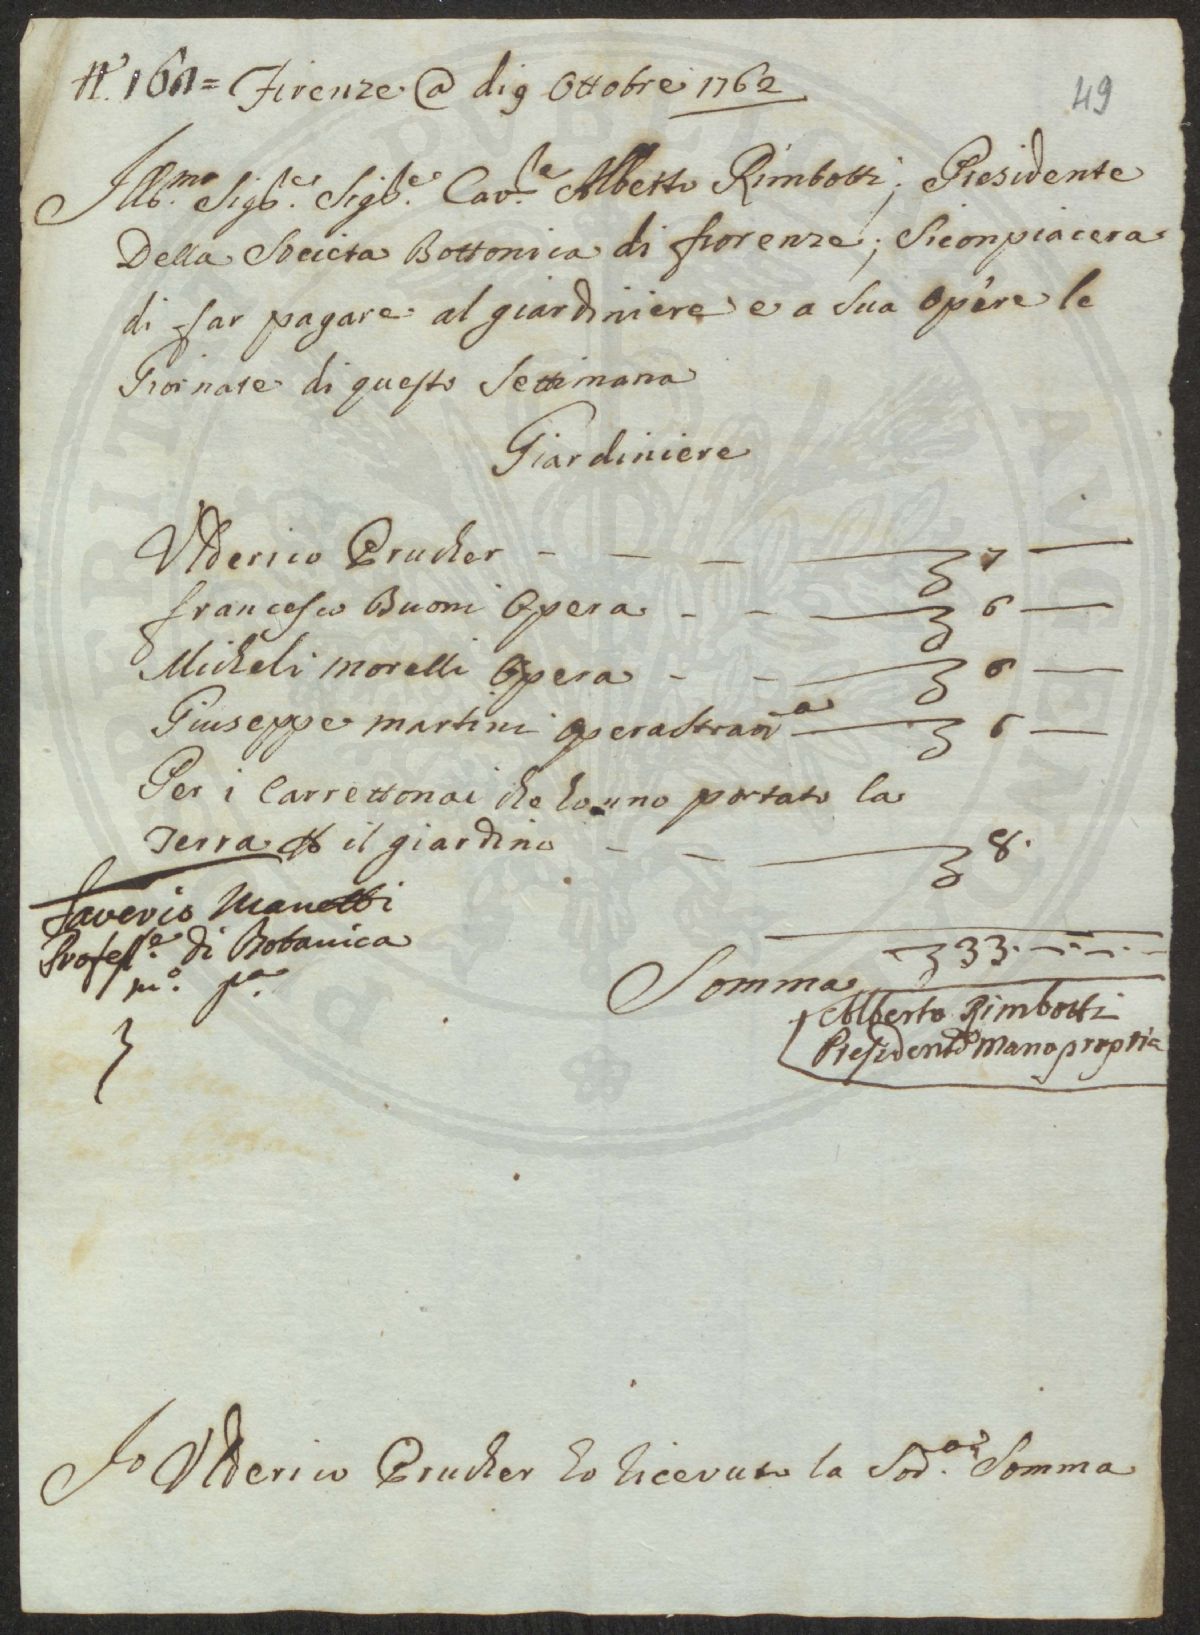 N.° 161 = Firenze @ di 9 Ottobre 1762
49
Ill.mo Sig.re Sig.re Cav.re Alberto Rimbotti; Presidente
Della Società Bottonica di fiorenze; Siconpiacera
di far pagare al giardiniere e a sua Opere le
Giornate di questo Settimana
Giardiniere
Ulderico Prucker - - - 7 -
francesco Buoni Opera - - 6 -
Micheli morelli Opera - - 6 -
Giuseppe martini opera stran.a 6 -
Per i Carrettonai che hanno portato la
Terra il giardino - - 8.
Saverio Manetti
Profess.e di Botanica
m.o p.a
Somma 33. - . - . -
Alberto Rimbotti
Presidente Mano propria
Io Ulderico Prucker ho ricevuto la Sod.a Somma